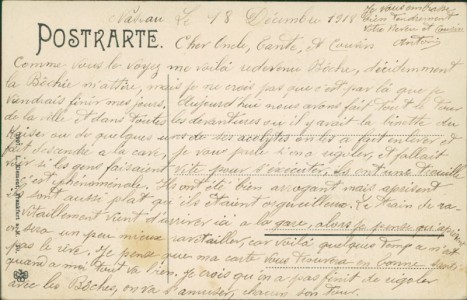 Nassau Le 18 Décembre 1918
Je vous embrasse
bien tendrement
Votre Neveu et Cousin
Antoine
POSTKARTE.
Cher Oncle, Tante, et Cousin
Comme vous le voyez me voilà redevenu Bôche, décidemment
la Bôchie m'attire, mais je ne crois pas que c'est par là que je
voudrais finir mes jours. Aujourd'hui nous avons fait tout le tour
de la ville et dans toutes les devantures où il y avait la binette du
Kaiser ou de quelques uns de ses acolytes on les a fait enlever et
descendre à la cave, je vous prie si on a rigolé, et fallait
voir si les gens faisaient vite pour s'executer, ils ont une trouille
c'est phénoménale. Ils ont été bien arrogant mais à présent
ils sont aussi plat qu'ils étaient orgueilleux. Le train de ra-
vitaillement vient d'arriver ici à la gare, alors je pense que
on sera un peu mieux ravitailler, car voilà quelques temps ce n'est
pas le rêve. Je pense que ma carte vous trouvera en bonne santé
quand à moi tout va bien. Je crois qu'on a pas finit de rigoler
avec les Bôches, on va s'amuser, chacun son tour.